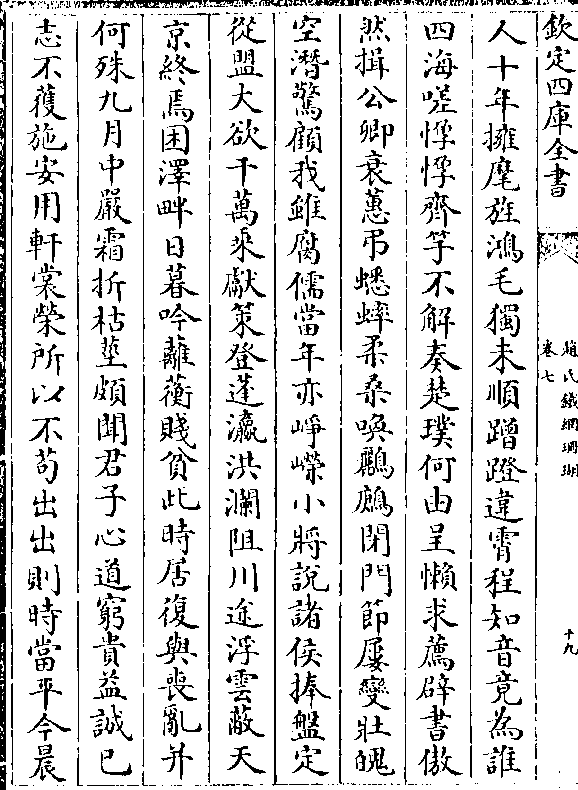 欽定四庫全書
趙氏鐵網珊瑚
卷七
十九
人十年擁麾旌鴻毛獨未順蹭蹬違霄程知音竟為誰
四海嗟惸惸齊竽不解奏楚璞何由呈懶求薦辟書傲
然揖公卿哀蕙弔蟋蟀柔桑喚鸝鶊閉門節屢變壯魄
空潛驚顧我雖腐儒當年亦崢嶸小將說諸侯捧盤定
從盟大欲千萬乗獻策登蓬瀛洪瀾阻川途浮雲蔽天
京終焉困澤畔日暮吟蘺蘅賤貧此時居復與喪亂并
何殊九月中嚴霜折枯莖頗聞君子心道窮貴益誠已
志不獲施安用軒裳榮所以不茍出出則時當平今晨